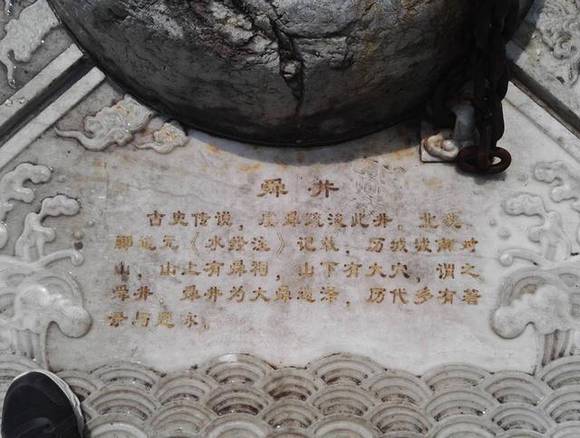 舜井
古史传说，虞舜疏浚此井。北魏
郦道元《水经注》记载，历城城南对
山，山上有舜祠，山下有大穴，谓之
舜井。舜井为大舜遗泽，历代多有著
录与题咏。